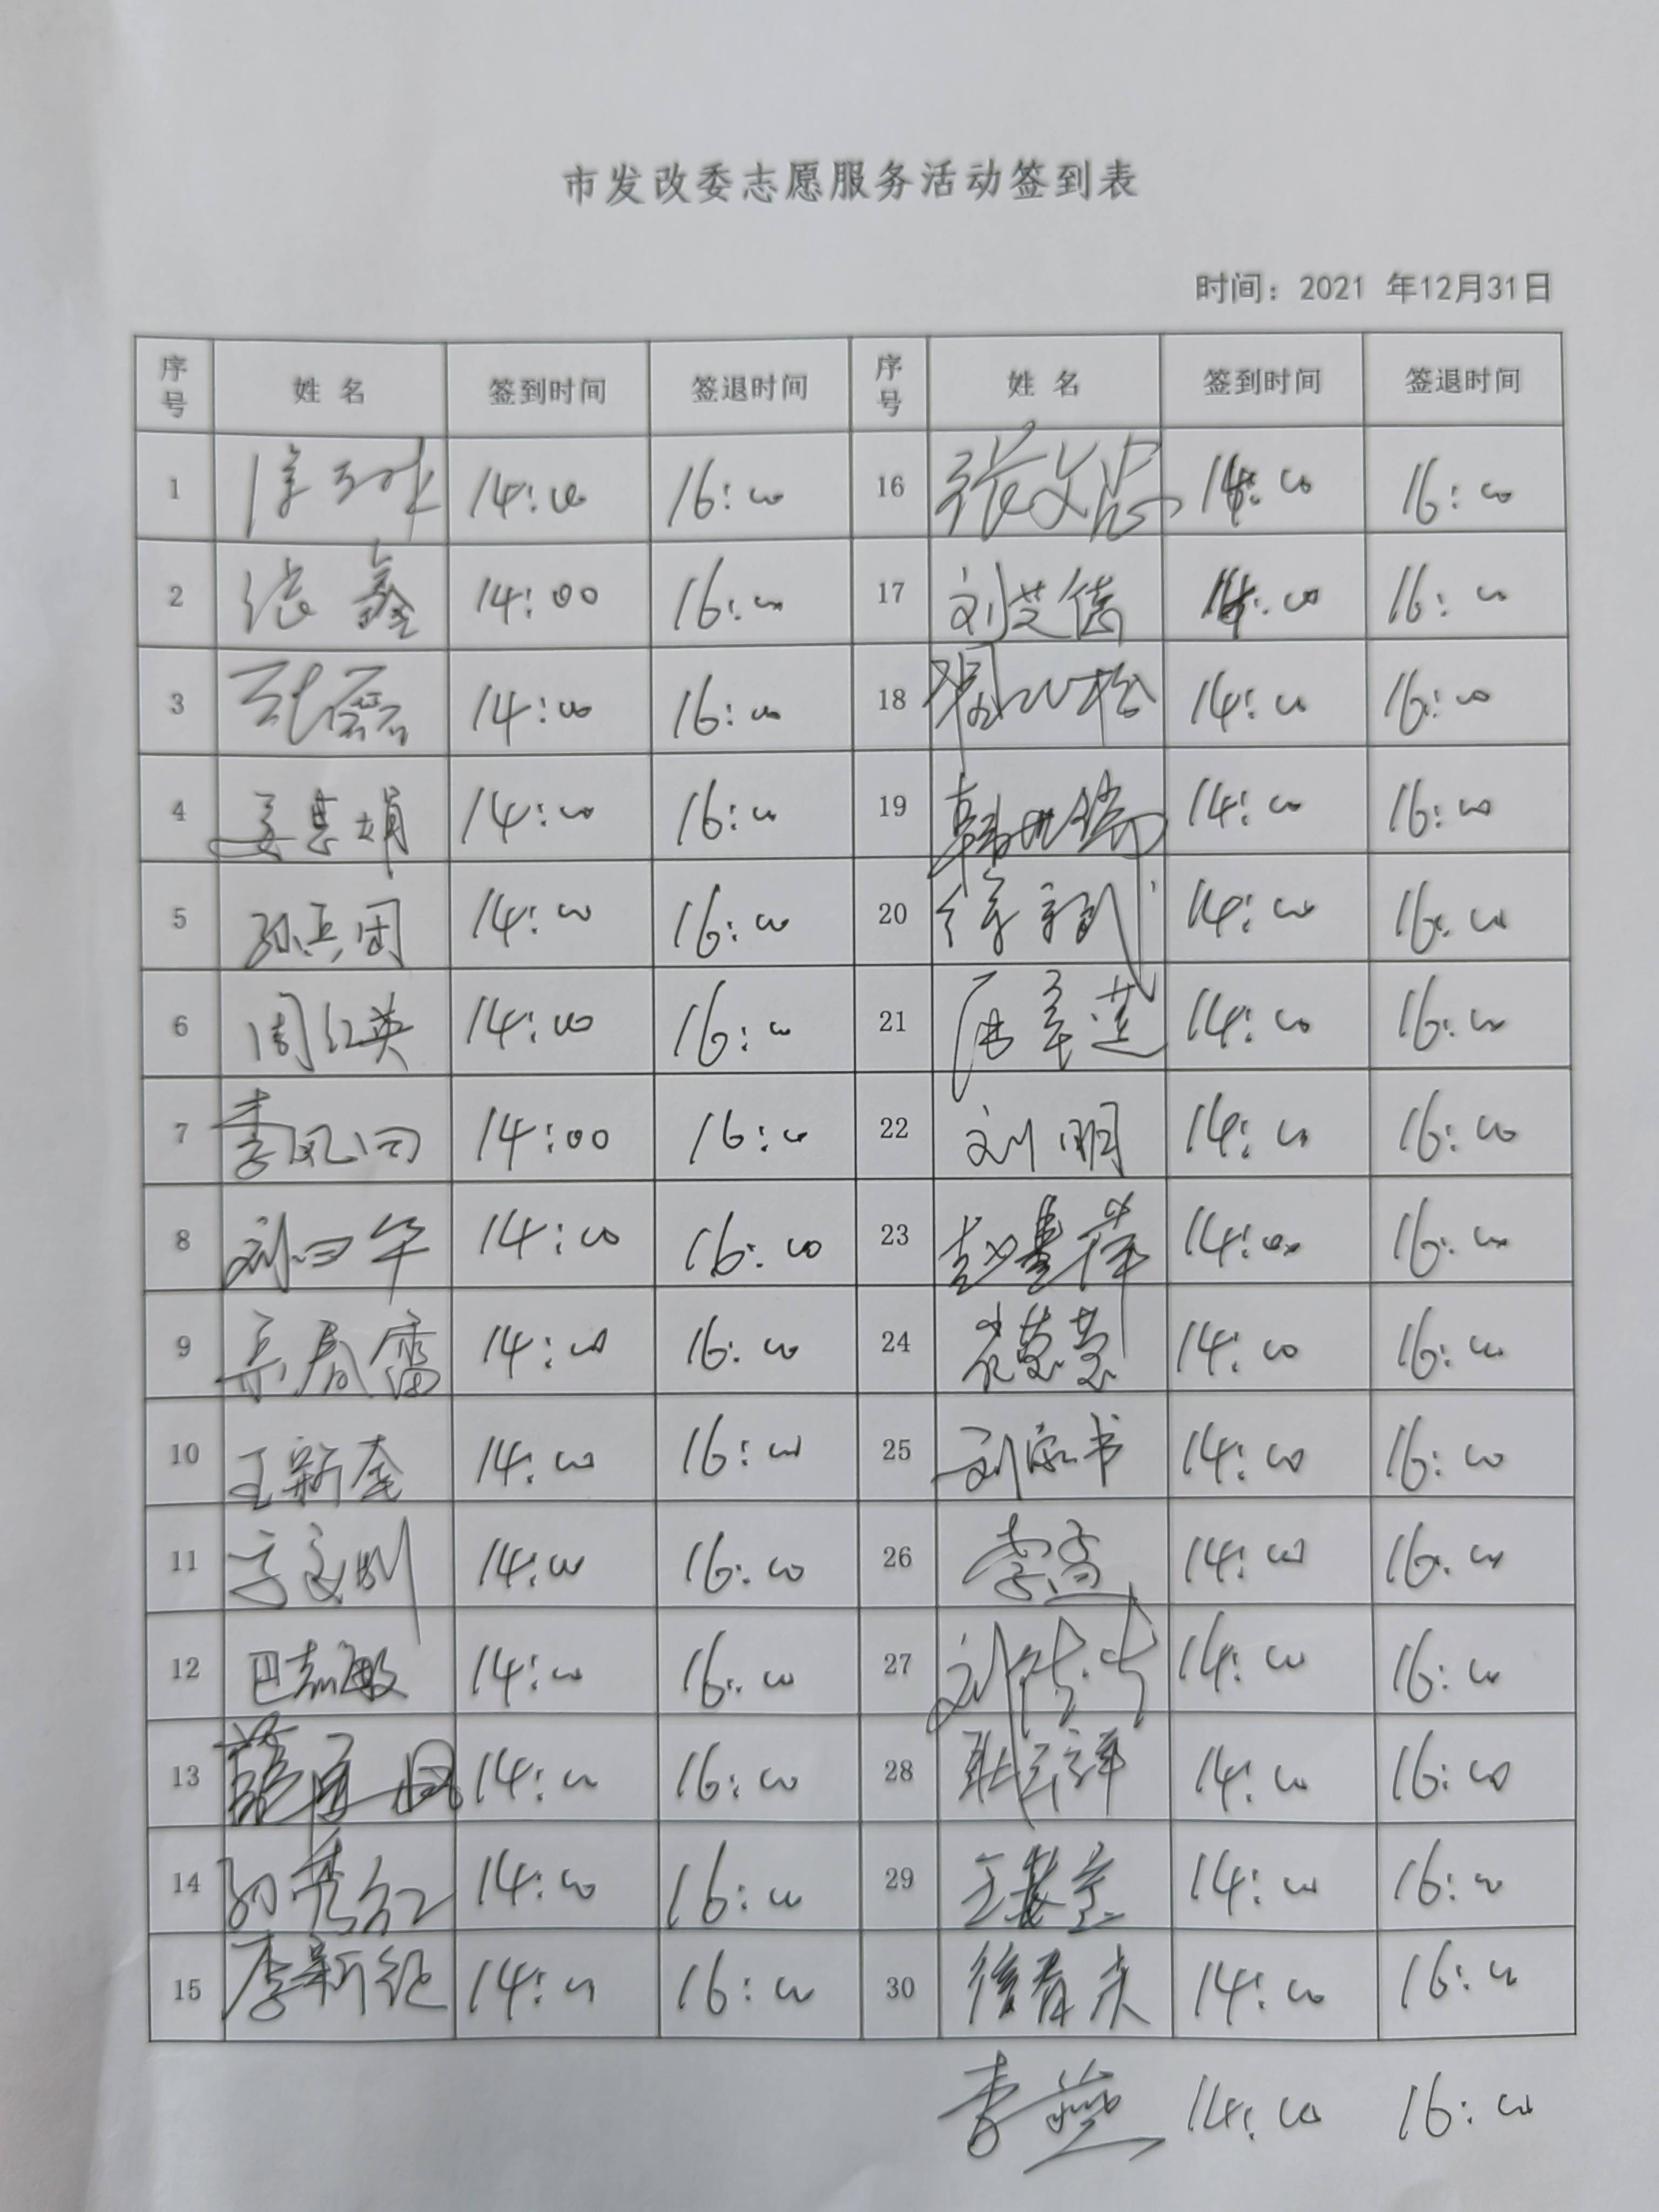 市发改委志愿服务活动签到表
时间：2021 年12月31日
序号 姓名 签到时间 签退时间 序号 姓名 签到时间 签退时间
1 14:00 16:00 16 张文 14:00 16:00
2 张鑫 14:00 16:00 17 刘艾倩 14:00 16:00
3 磊 14:00 16:00 18 松 14:00 16:00
4 姜慧娟 14:00 16:00 19 韩 14:00 16:00
5 孙兵团 14:00 16:00 20 徐 14:00 16:00
6 周红英 14:00 16:00 21 莲 14:00 16:00
7 李凤 14:00 16:00 22 刘明 14:00 16:00
8 刘 14:00 16:00 23 赵 萍 14:00 16:00
9 春雷 14:00 16:00 24 慧慧 14:00 16:00
10 王新奎 14:00 16:00 25 刘 书 14:00 16:00
11 14:00 16:00 26 李 14:00 16:00
12 巴志敏 14:00 16:00 27 刘 14:00 16:00
13 薛 14:00 16:00 28 耿 祥 14:00 16:00
14 孙秀红 14:00 16:00 29 王 14:00 16:00
15 李新 14:00 16:00 30 徐春 14:00 16:00
李燕 14:00 16:00